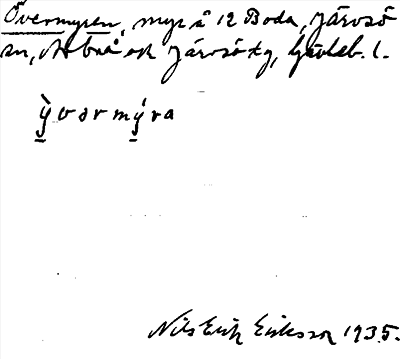 Övermyren, myr å 12 Boda, Järvsö
sn, Arbrå ock Järvsö tg, Gävleb. l.
ỳvərmýra
Nils Erik Eriksson 1935.